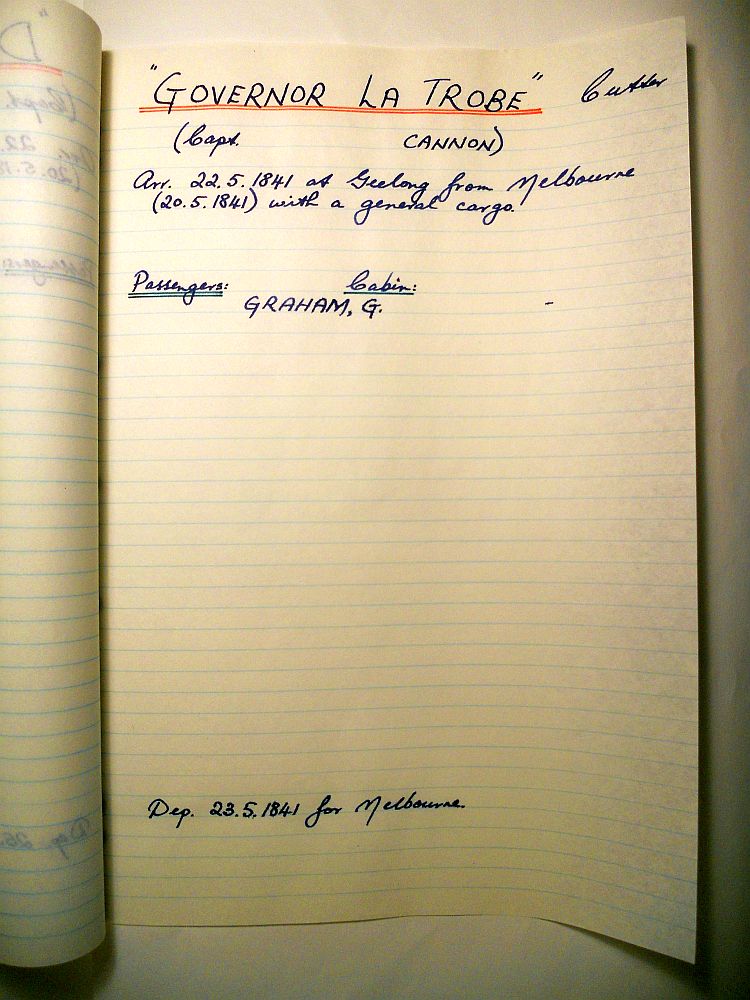 "GOVERNOR LA TROBE" Cutter
(Capt. CANNON)
Arr. 22.5.1841 at Geelong from Melbourne
(20.5.1841) with a general cargo.
Passengers: Cabin:
GRAHAM, G. -
Dep. 23.5.1841 for Melbourne.